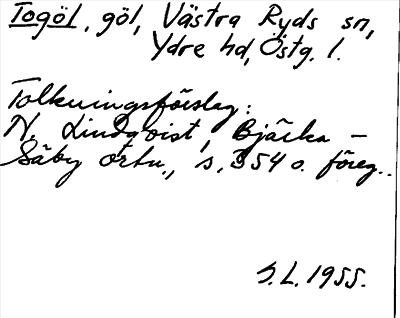 Togöl, göl, Västra Ryds sn,
Ydre hd, Östg. l.
Tolkningsförslag:
N. Lindqvist, Bjärka –
Säby ortn., s. 354 o. föreg..
S.L. 1955.